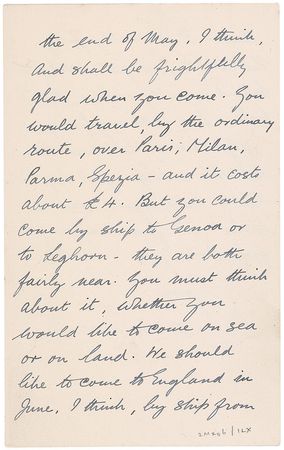 the end of May, I think,
and shall be frightfully
glad when you come. You
would travel by the ordinary
route, over Paris, Milan,
Parma, Spezia - and it costs
about £4. But you could
come by ship to Genoa or
to Leghorn - they are both
fairly near. You must think
about it, whether you
would like to come on sea
or on land. We should
like to come to England in
June, I think, by ship from